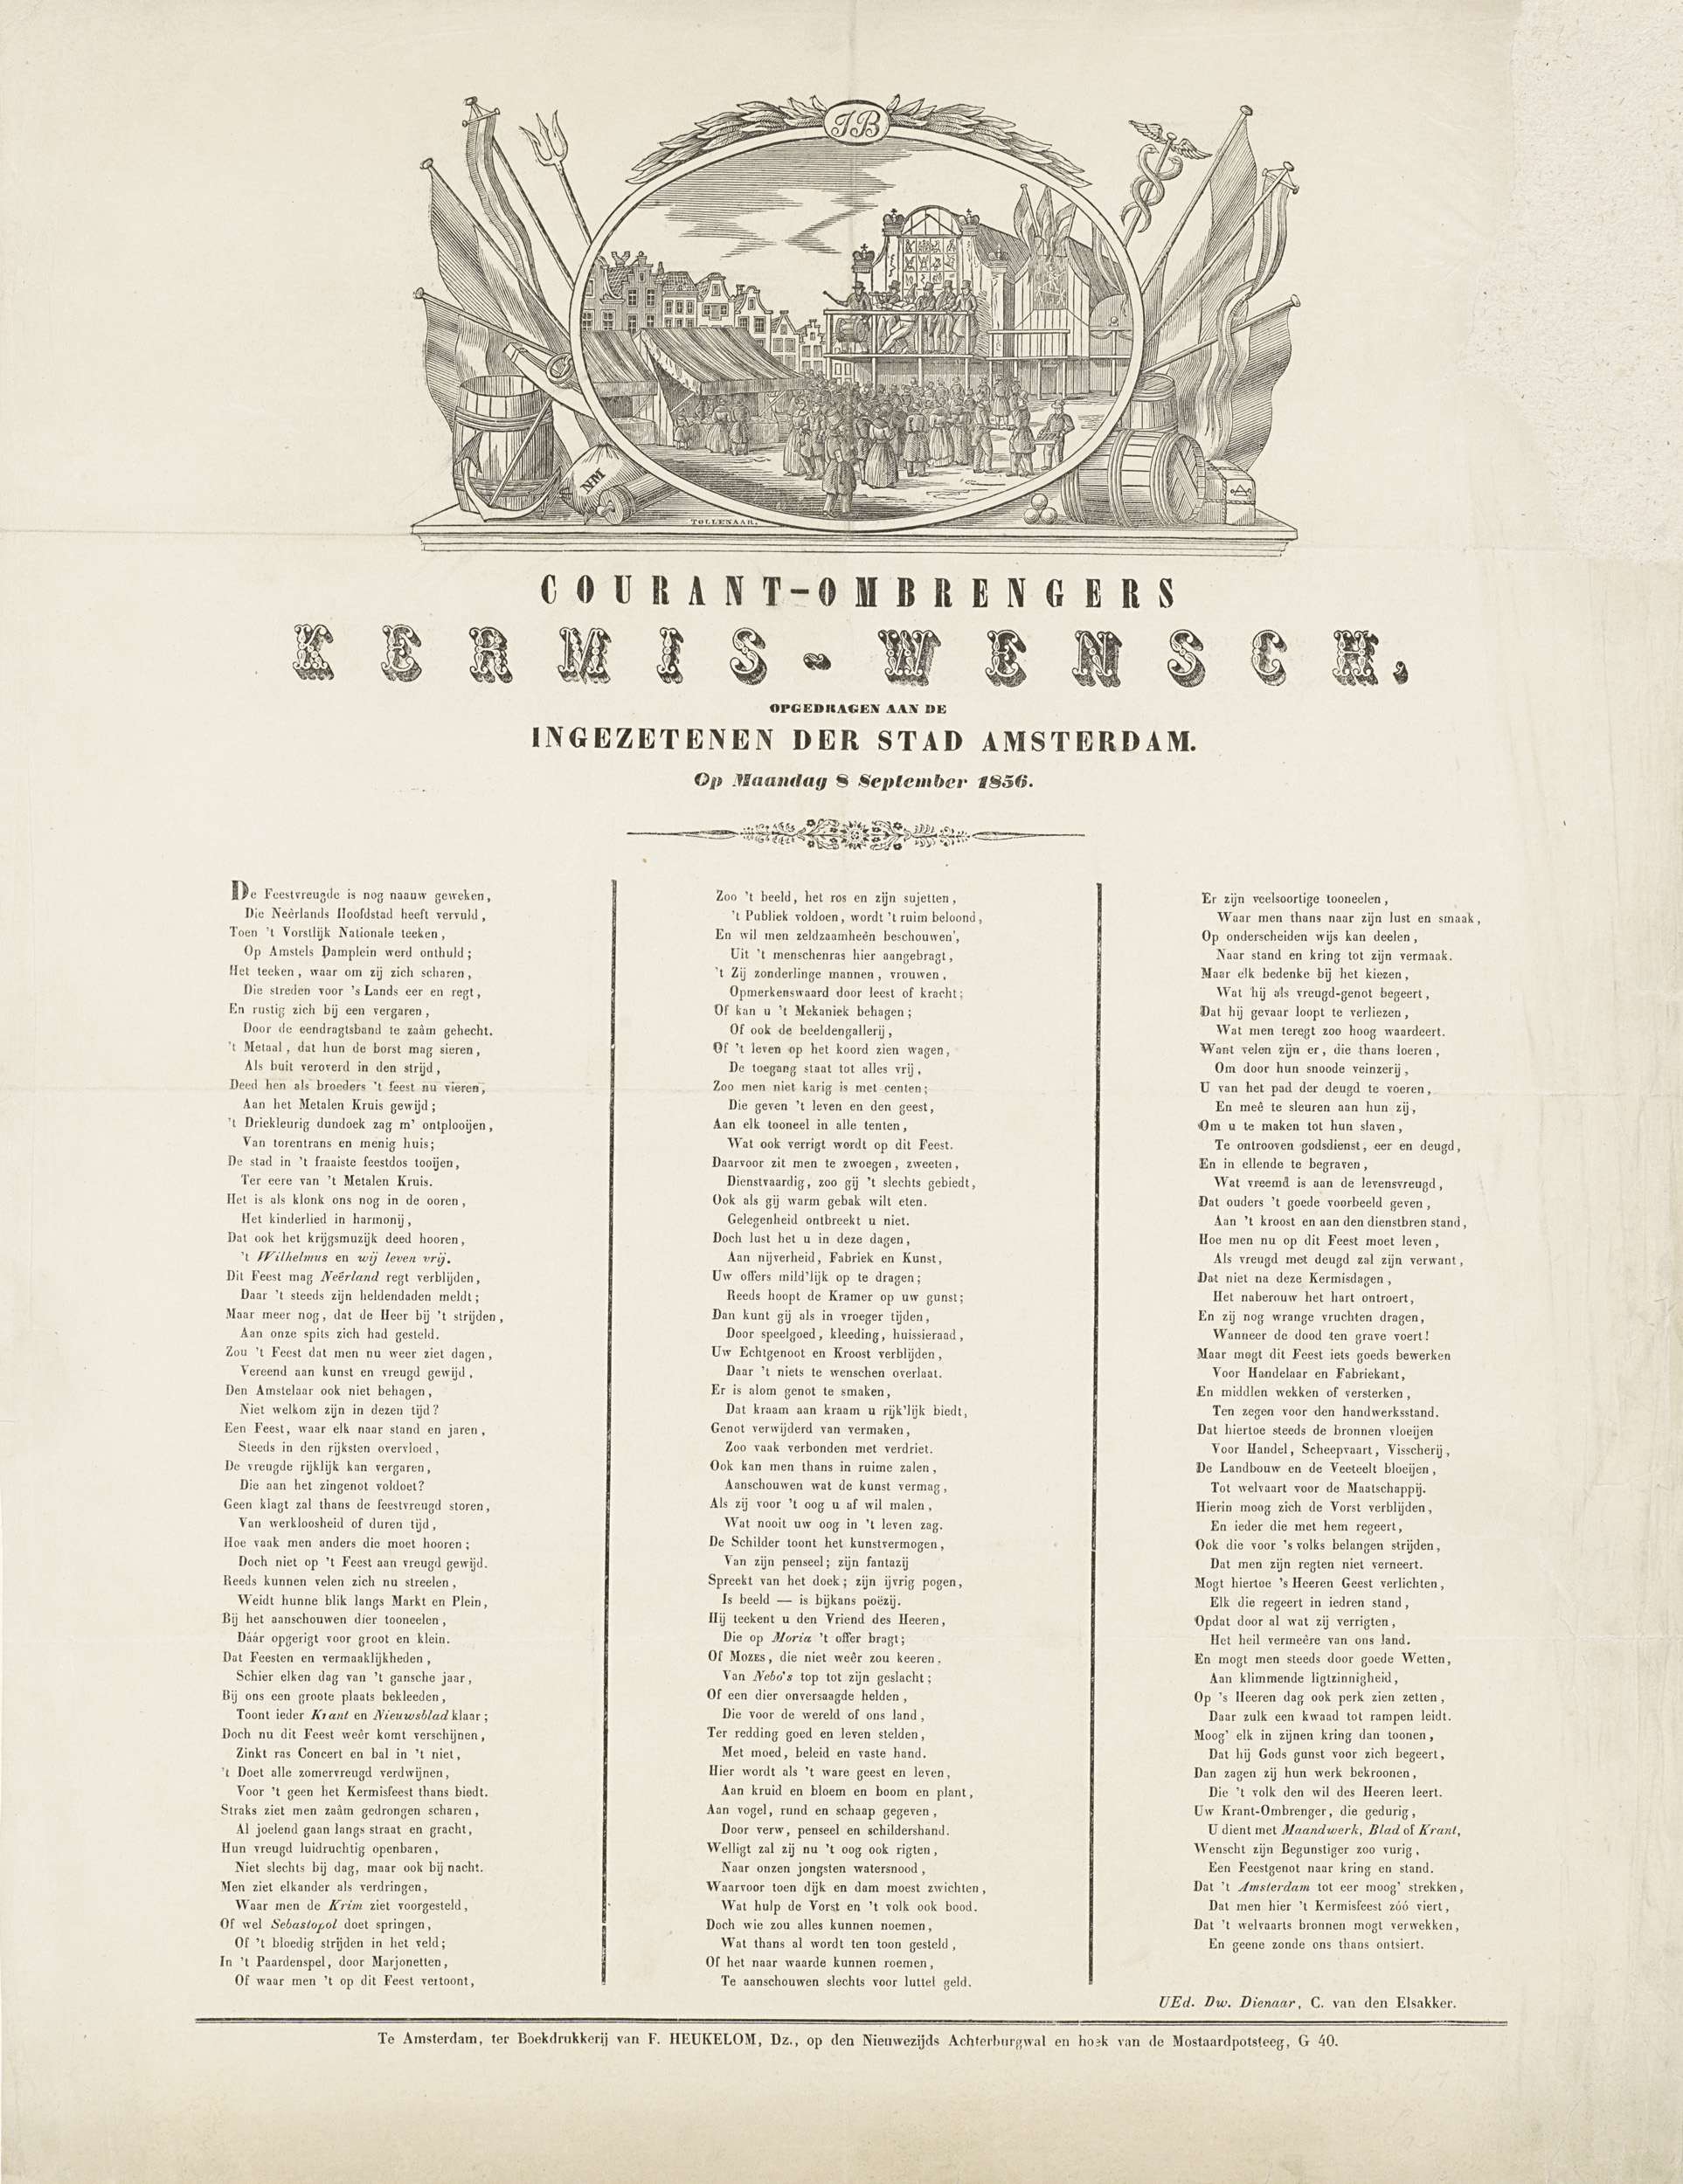 JB
NM
TOLLENAAR.
COURANT-OMBRENGERS
KERMIS-WENSCH,
OPGEDRAGEN AAN DE
INGEZETENEN DER STAD AMSTERDAM.
Op Maandag 8 September 1856.
De Feestvreugde is nog naauw geweken,
Die Neêrlands Hoofdstad heeft vervuld,
Toen 't Vorstlijk Nationale teeken,
Op Amstels Damplein werd onthuld;
Het teeken, waar om zij zich scharen,
Die streden voor 's Lands eer en regt,
En rustig zich bij een vergaren,
Door de eendragtsband te zaâm gehecht.
't Metaal, dat hun de borst mag sieren,
Als buit veroverd in den strijd,
Deed hen als broeders 't feest nu vieren,
Aan het Metalen Kruis gewijd;
't Driekleurig dundoek zag m' ontplooijen,
Van torentrans en menig huis;
De stad in 't fraaiste feestdos tooijen,
Ter eere van 't Metalen Kruis.
Het is als klonk ons nog in de ooren,
Het kinderlied in harmonij,
Dat ook het krijgsmuzijk deed hooren,
't Wilhelmus en wij leven vrij.
Dit Feest mag Neêrland regt verblijden,
Daar 't steeds zijn heldendaden meldt;
Maar meer nog, dat de Heer bij 't strijden,
Aan onze spits zich had gesteld.
Zou 't Feest dat men nu weer ziet dagen,
Vereend aan kunst en vreugd gewijd,
Den Amstelaar ook niet behagen,
Niet welkom zijn in dezen tijd?
Een Feest, waar elk naar stand en jaren,
Steeds in den rijksten overvloed,
De vreugde rijklijk kan vergaren,
Die aan het zingenot voldoet?
Geen klagt zal thans de feestvreugd storen,
Van werkloosheid of duren tijd,
Hoe vaak men anders die moet hooren;
Doch niet op 't Feest aan vreugd gewijd.
Reeds kunnen velen zich nu streelen,
Weidt hunne blik langs Markt en Plein,
Bij het aanschouwen dier tooneelen,
Dáár opgerigt voor groot en klein.
Dat Feesten en vermaaklijkheden,
Schier elken dag van 't gansche jaar,
Bij ons een groote plaats bekleeden,
Toont ieder Krant en Nieuwsblad klaar;
Doch nu dit Feest weêr komt verschijnen,
Zinkt ras Concert en bal in 't niet,
't Doet alle zomervreugd verdwijnen,
Voor 't geen het Kermisfeest thans biedt.
Straks ziet men zaâm gedrongen scharen,
Al joelend gaan langs straat en gracht,
Hun vreugd luidruchtig openbaren,
Niet slechts bij dag, maar ook bij nacht.
Men ziet elkander als verdringen,
Waar men de Krim ziet voorgesteld,
Of wel Sebastopol doet springen,
Of 't bloedig strijden in het veld;
In 't Paardenspel, door Marjonetten,
Of waar men 't op dit Feest vertoont,
Zoo 't beeld, het ros en zijn sujetten,
't Publiek voldoen, wordt 't ruim beloond,
En wil men zeldzaamheên beschouwen',
Uit 't menschenras hier aangebragt,
't Zij zonderlinge mannen, vrouwen,
Opmerkenswaard door leest of kracht;
Of kan u 't Mekaniek behagen;
Of ook de beeldengallerij,
Of 't leven op het koord zien wagen,
De toegang staat tot alles vrij,
Zoo men niet karig is met centen;
Die geven 't leven en den geest,
Aan elk tooneel in alle tenten,
Wat ook verrigt wordt op dit Feest.
Daarvoor zit men te zwoegen, zweeten,
Dienstvaardig, zoo gij 't slechts gebiedt,
Ook als gij warm gebak wilt eten.
Gelegenheid ontbreekt u niet.
Doch lust het u in deze dagen,
Aan nijverheid, Fabriek en Kunst,
Uw offers mild'lijk op te dragen;
Reeds hoopt de Kramer op uw gunst;
Dan kunt gij als in vroeger tijden,
Door speelgoed, kleeding, huissieraad,
Uw Echtgenoot en Kroost verblijden,
Daar 't niets te wenschen overlaat.
Er is alom genot te smaken,
Dat kraam aan kraam u rijk'lijk biedt,
Genot verwijderd van vermaken,
Zoo vaak verbonden met verdriet.
Ook kan men thans in ruime zalen,
Aanschouwen wat de kunst vermag,
Als zij voor 't oog u af wil malen,
Wat nooit uw oog in 't leven zag.
De Schilder toont het kunstvermogen,
Van zijn penseel; zijn fantazij
Spreekt van het doek; zijn ijvrig pogen,
Is beeld — is bijkans poëzij.
Hij teekent u den Vriend des Heeren,
Die op Moria 't offer bragt;
Of MOZES, die niet weêr zou keeren,
Van Nebo's top tot zijn geslacht;
Of een dier onversaagde helden,
Die voor de wereld of ons land,
Ter redding goed en leven stelden,
Met moed, beleid en vaste hand.
Hier wordt als 't ware geest en leven,
Aan kruid en bloem en boom en plant,
Aan vogel, rund en schaap gegeven,
Door verw, penseel en schildershand.
Welligt zal zij nu 't oog ook rigten,
Naar onzen jongsten watersnood,
Waarvoor toen dijk en dam moest zwichten,
Wat hulp de Vorst en 't volk ook bood.
Doch wie zou alles kunnen noemen,
Wat thans al wordt ten toon gesteld,
Of het naar waarde kunnen roemen,
Te aanschouwen slechts voor luttel geld.
Er zijn veelsoortige tooneelen,
Waar men thans naar zijn lust en smaak,
Op onderscheiden wijs kan deelen,
Naar stand en kring tot zijn vermaak.
Maar elk bedenke bij het kiezen,
Wat hij als vreugd-genot begeert,
Dat hij gevaar loopt te verliezen,
Wat men teregt zoo hoog waardeert.
Want velen zijn er, die thans loeren,
Om door hun snoode veinzerij,
U van het pad der deugd te voeren,
En meê te sleuren aan hun zij,
Om u te maken tot hun slaven,
Te ontrooven godsdienst, eer en deugd,
En in ellende te begraven,
Wat vreemd is aan de levensvreugd,
Dat ouders 't goede voorbeeld geven,
Aan 't kroost en aan den dienstbren stand,
Hoe men nu op dit Feest moet leven,
Als vreugd met deugd zal zijn verwant,
Dat niet na deze Kermisdagen,
Het naberouw het hart ontroert,
En zij nog wrange vruchten dragen,
Wanneer de dood ten grave voert!
Maar mogt dit Feest iets goeds bewerken
Voor Handelaar en Fabriekant,
En middlen wekken of versterken,
Ten zegen voor den handwerksstand.
Dat hiertoe steeds de bronnen vloeijen
Voor Handel, Scheepvaart, Visscherij,
De Landbouw en de Veeteelt bloeijen,
Tot welvaart voor de Maatschappij.
Hierin moog zich de Vorst verblijden,
En ieder die met hem regeert,
Ook die voor 's volks belangen strijden,
Dat men zijn regten niet verneert.
Mogt hiertoe 's Heeren Geest verlichten,
Elk die regeert in iedren stand,
Opdat door al wat zij verrigten,
Het heil vermeêre van ons land.
En mogt men steeds door goede Wetten,
Aan klimmende ligtzinnigheid,
Op 's Heeren dag ook perk zien zetten,
Daar zulk een kwaad tot rampen leidt.
Moog' elk in zijnen kring dan toonen,
Dat hij Gods gunst voor zich begeert,
Dan zagen zij hun werk bekroonen,
Die 't volk den wil des Heeren leert.
Uw Krant-Ombrenger, die gedurig,
U dient met Maandwerk, Blad of Krant,
Wenscht zijn Begunstiger zoo vurig,
Een Feestgenot naar kring en stand.
Dat 't Amsterdam tot eer moog' strekken,
Dat men hier 't Kermisfeest zóó viert,
Dat 't welvaarts bronnen mogt verwekken,
En geene zonde ons thans ontsiert.
UEd. Dw. Dienaar, C. van den Elsakker.
Te Amsterdam, ter Boekdrukkerij van F. HEUKELOM, Dz., op den Nieuwezijds Achterburgwal en hoek van de Mostaardpotsteeg, G 40.